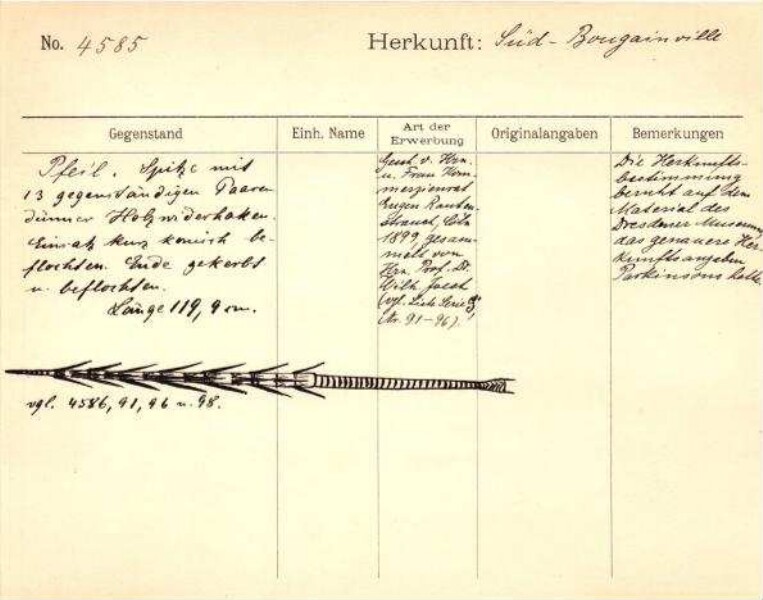 No. 4585
Herkunft: Süd-Bougainville
Gegenstand
Einh. Name
Art der Erwerbung
Originalangaben
Bemerkungen
Pfeil. Spitze mit
13 gegenständigen Paaren
dünner Holzwiderhaken.
Einsatz kurz konisch be-
flochten. Ende gekerbt
u. beflochten.
Länge 119,9 cm.
vgl. 4586, 91, 96 u. 98.
Gesch. v. Hrn.
u. Frau Kom-
merzienrat
Eugen Rauten-
strauch, Cöln
1899, gesam-
melt von
Hrn. Prof. Dr.
Wilh. Joest
(vgl. Liste Serie
Nr. 91-96).
Die Herkunfts-
bestimmung
beruht auf dem
Material des
Dresdener Museums,
das genauere Her-
kunftsangaben
Parkinsons hatte.